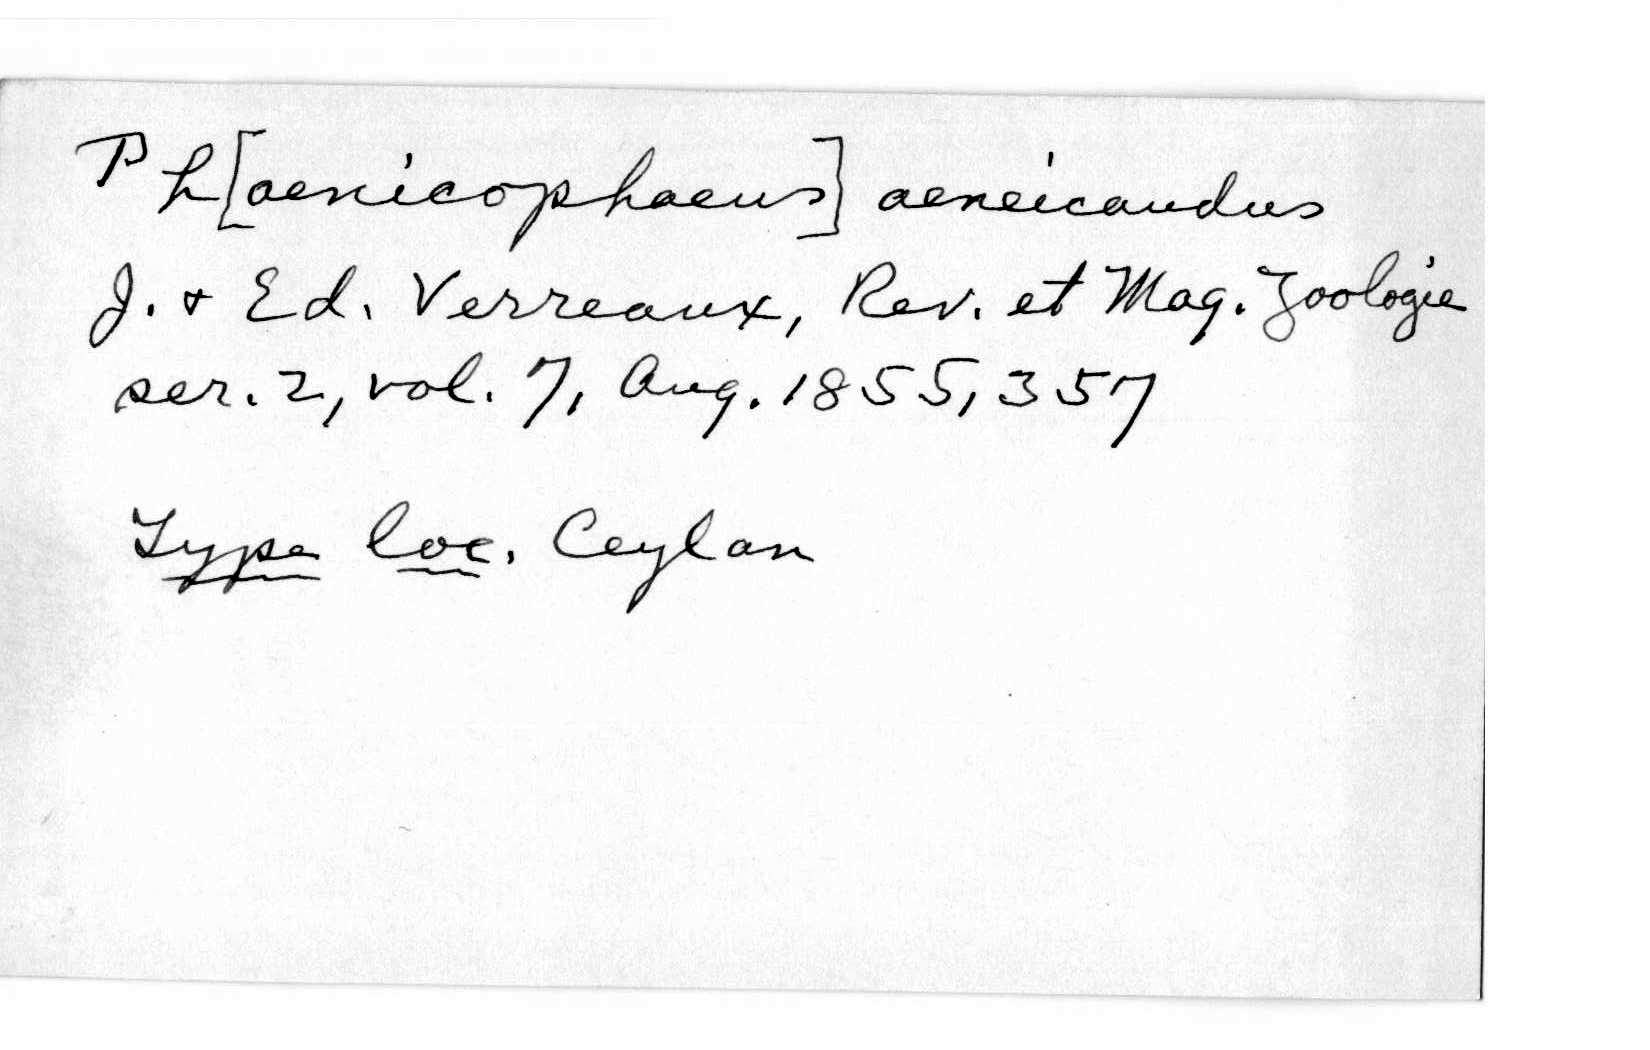 Ph[aenicophaeus] aeneicaudus
J. & Ed. Verreaux, Rev. et Mag. Zoologie
ser. 2, vol. 7, Aug. 1855, 357
Type loc. Ceylan